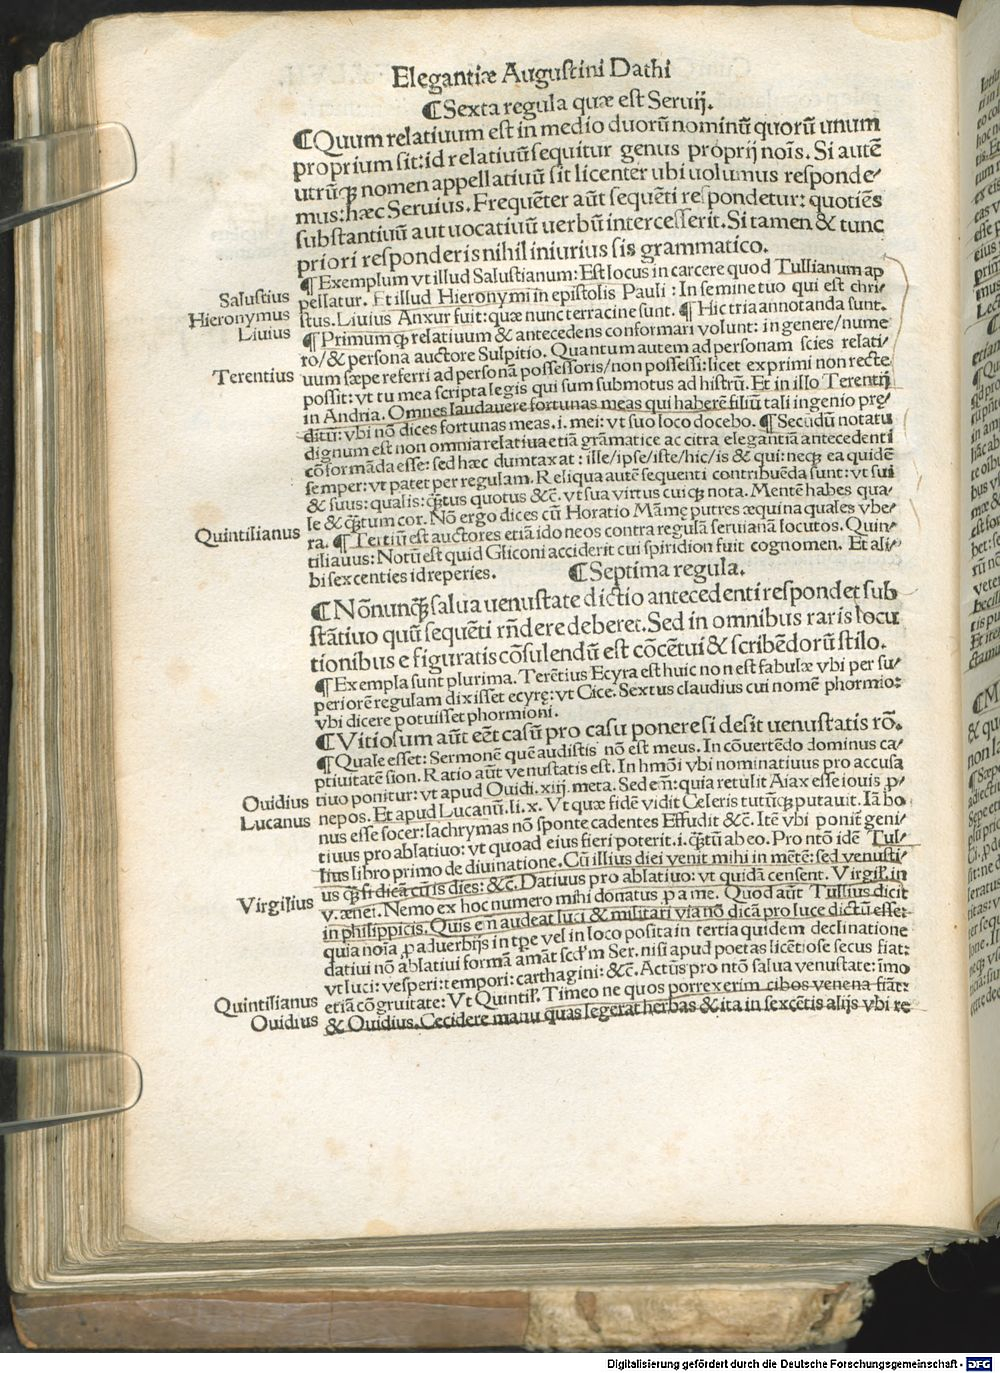 Elegantiæ Augustini Dathi
¶Sexta regula quæ est Seruij.
¶Quum relatiuum est in medio duorū nominū quorū unum
proprium sit: id relatiuū sequitur genus proprij noīs. Si autē
utrūqꝫ nomen appellatiuū sit licenter ubi uolumus responde⸗
mus: hæc Seruius. Frequēter aūt sequēti respondetur: quotiēs
substantiuū aut uocatiuū uerbū intercesserit. Si tamen & tunc
priori responderis nihil iniurius sis grammatico.
¶Exemplum vt illud Salustianum: Est locus in carcere quod Tullianum ap
Salustius pellatur. Et illud Hieronymi in epistolis Pauli: In semine tuo qui est chri⸗
Hieronymus stus. Liuius Anxur fuit: quæ nunc terracine sunt. ¶Hic tria annotanda sunt.
Liuius ¶Primum qꝫ relatiuum & antecedens conformari volunt: in genere/nume
ro/& persona auctore Sulpitio. Quantum autem ad personam scies relati⸗
Terentius uum sæpe referri ad personā possessoris/non possessi: licet exprimi non recte
possit: vt tu mea scripta legis qui sum submotus ad histrū. Et in illo Terentij
in Andria. Omnes laudauere fortunas meas qui haberē filiū tali ingenio prę
ditū: vbi nō dices fortunas meas .i. mei: vt suo loco docebo. ¶Secūdū notatu
dignum est non omnia relatiua etiā gramatice ac citra elegantiā antecedenti
cōformāda esse: sed hæc dumtaxat: ille/ipse/iste/hic/is & qui: neqꝫ ea quidē
semper: vt patet per regulam. Reliqua autē sequenti contribuēda sunt: vt sui
& suus: qualis: qꝫ̄tus quotus &c̄. vt sua virtus cuiqꝫ nota. Mentē habes qua⸗
le & qꝫ̄tum cor. Nō ergo dices cū Horatio Māme putres æquina quales vbe⸗
Quintilianus ra. ¶Tertiū est auctores etiā idoneos contra regulā seruianā locutos. Quin⸗
tiliauus: Notū est quid Gliconi acciderit cui spiridion fuit cognomen. Et ali⸗
bi sexcenties id reperies. ¶Septima regula.
¶Nōnunqꝫ̄ salua uenustate dictio antecedenti respondet sub
stātiuo quū sequēti rn̄dere deberet. Sed in omnibus raris locu
tionibus e figuratis cōsulendū est cōcētui & scribēdorū stilo.
¶Exempla sunt plurima. Terētius Ecyra est huic non est fabulæ vbi per su⸗
periorē regulam dixisset ecyrę: vt Cice. Sextus claudius cui nomē phormio:
vbi dicere potuisset phormioni.
¶Vitiosum aūt eēt casū pro casu ponere si desit uenustatis rō.
¶Quale esset: Sermonē quē audistis nō est meus. In cōuertēdo dominus ca⸗
ptiuitatē sion. Ratio aūt venustatis est. In hmōi vbi nominatiuus pro accusa
Ouidius tiuo ponitur: vt apud Ouidi. xiij. meta. Sed em̄: quia retulit Aiax esse iouis ꝓ⸗
Lucanus nepos. Et apud Lucanū. li. x. Vt quæ fidē vidit Celeris tutūqꝫ putauit. Iā bo
nus esse socer: lachrymas nō sponte cadentes Effudit &c̄. Itē vbi ponit̄ geni⸗
tiuus pro ablatiuo: vt quoad eius fieri poterit .i. qꝫ̄tū ab eo. Pro ntō idē Tul⸗
lius libro primo de diuinatione. Cū illius diei venit mihi in mētē: sed venusti⸗
us qꝫ̄ si dicā cū is dies: &c̄. Datiuus pro ablatiuo: vt quidā censent. Virgil. in
Virgilius v. ænei. Nemo ex hoc numero mihi donatus ꝑ a me. Quod aūt Tullius dicit
in philippicis. Quis em̄ audeat luci & militari via nō dicā pro luce dictū esse:
quia noīa ꝓ aduerbijs in tp̄e vel in loco posita in tertia quidem declinatione
datiui nō ablatiui formā amāt sedm̄ Ser. nisi apud poetas licētiose secus fiat:
vt luci: vesperi: tempori: carthagini: &c̄. Actūs pro ntō salua venustate: īmo
Quintilianus etiā cōgruitate: Vt Quintil. Timeo ne quos porrexerim cibos venena fiāt:
Ouidius & Ouidius. Cecidere manu quas legerat herbas & ita in sexcētis alijs vbi re
Digitalisierung gefördert durch die Deutsche Forschungsgemeinschaft - DFG